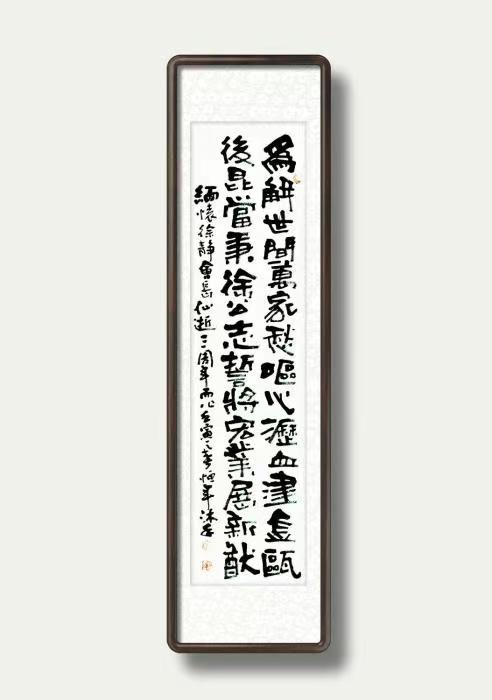 為解世間萬家愁嘔心瀝血建金甌
後昆當秉徐公志誓將宏業展新猷
緬懷徐靜會長仙逝三周年而作壬寅之春恒年沐手